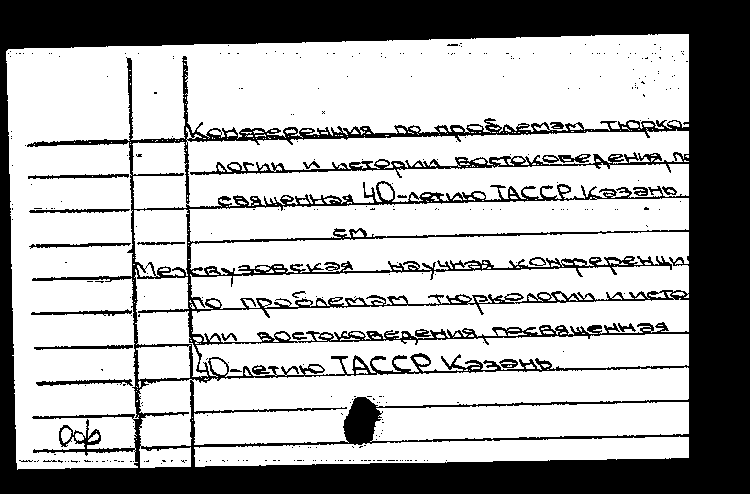 Конференция по проблемам тюрко-
логии и истории востоковедения, по
священная 40-летию ТАССР. Казань.
см.
Межвузовская научная конференция
по проблемам тюркологии и исто
рии востоковедения, посвященная
40-летию ТАССР. Казань.
Оф